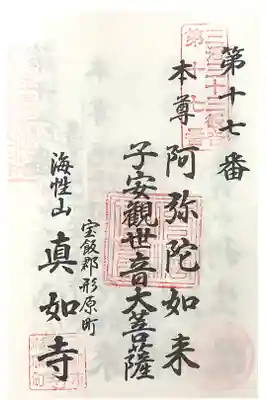 第十七番
本尊 阿弥陀如来
子安觀世音大菩薩
宝飯郡形原町
海性山 真如寺